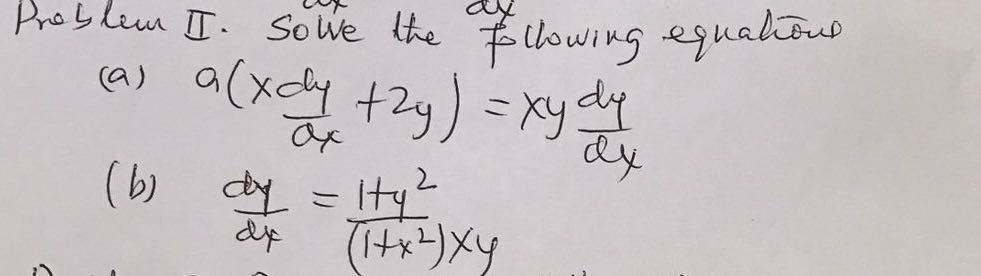 Problem II. Solve the following equations
(a) a(x dy/dx + 2y) = xy dy/dx
(b) dy/dx = 1+y²/(1+x²)xy